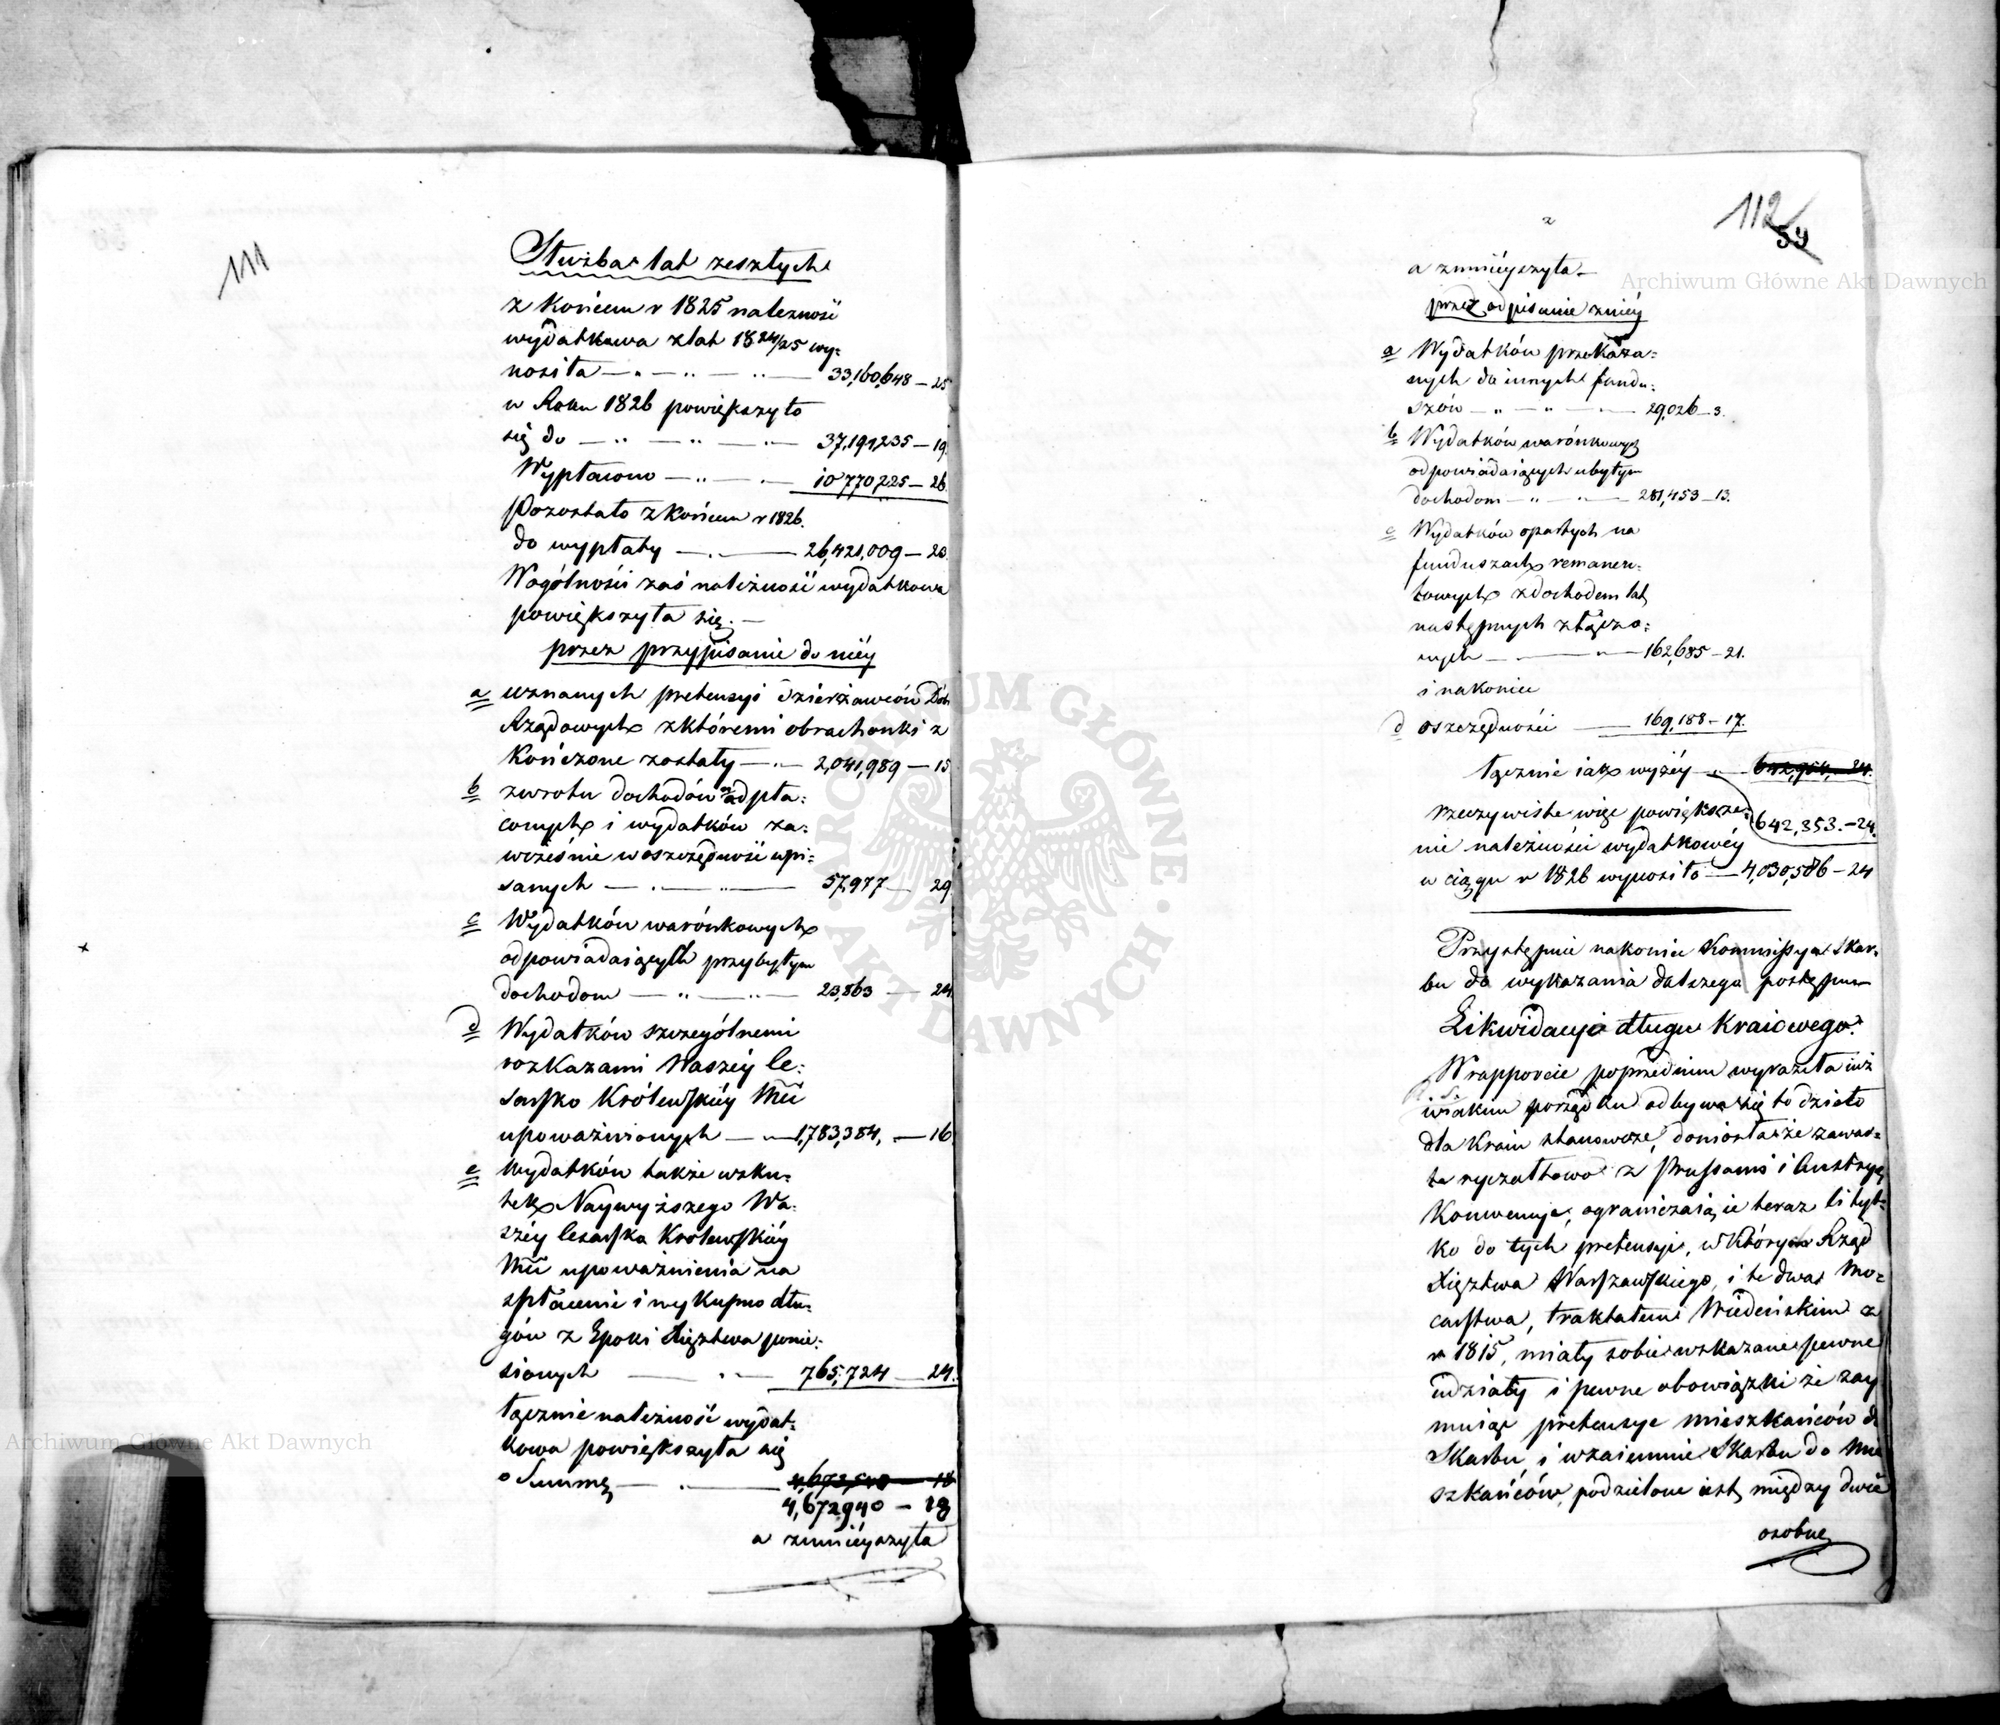 111
Służba lat zeszłych
z końcem r 1825 należność
wydatkowa z lat 1824/25 wy=
nosiła — " — " — " — 33,160,648 — 25
w Roku 1826 powiększyło
się do — " — " — " — 37,191,235 — 19.
Wypłacono — " — " — 10 770,225 — 26.
Pozostało z końcem r 1826.
do wypłaty — " — 26,421,009 — 23.
W ogólności zaś należność wydatkowa
powiększyła się. —
przez przypisanie do niéy
a uznanych pretensyi Dzierżawców Dóbr
Rządowych z któremi obrachonki z
kończone zostały — " — 2,041,989 — 15
b zwrotu dochodów odpła=
conych i wydatków za=
wcześnie w oszczędność wpi=
sanych — " — " — 57,977 — 29
c Wydatków warónkowych
odpowiadaiących przybyłym
dochodom — " — " — 23,863 — 24.
d Wydatków szczególnemi
rozkazami Waszéy Ce=
sarsko Królewskiéy Mci
upoważnionych — " — 1,783,384, — 16.
e Wydatków także wsku=
tek Naywyższego Wa=
széy Cesarsko Królewskiéy
Mci upoważnienia na
spłacenie i wykupno dłu=
gów z Epoki Xięztwa ponie=
sionych — " — 765,724 — 24.
łącznie należność wydat=
kowa powiększyła się
o Summę — " — 18
4,672,940 — 18
a zmniéyszyła
112
59
a zmniéyszyła —
przez odpisanie z niéy
a Wydatków przekaza=
nych do innych fundu=
szów — " — " — " — 29,026 — 3.
b Wydatków warónkowych
odpowiadaiących ubyłym
dochodom — " — " — 281,453 — 13.
c Wydatków opartych na
funduszach remanen=
towych z dochodem lat
następnych złączo=
nych — " — 162,685 — 21.
i nakoniec
d oszczędności — 169,188 — 17.
łącznie iak wyżéy — " — 642,954, — 24.
rzeczywiste więc powiększe=
642,353. — 24.
nie należności wydatkowéy
w ciągu r 1826 wynosiło — 4,030,586 — 24
Przystępuie nakoniec Kommissya Skar=
bu do wykazania dalszego postępu
Likwidacyi długu kraiowego.
W rapporcie poprzednim wyraziła iuż
w iakim porządku odbywa się to dzieło
dla Kraiu stanowcze, doniosła że zawar=
te ryczałtowo z Prussami i Austryą
Konwencye, ograniczaią ie teraz li tyl=
ko do tych pretensyi, w których Rząd
Xięztwa Warszawskiego, i te dwa Mo=
carstwa, traktatem Wiedeńskim z
r 1815, miały sobie wskazane pewne
udziały i pewne obowiązki że zay
muiąc pretensye mieszkańców do
Skarbu, i wzaiemnie Skarbu do Mie
szkańców, podzielone iest między dwie
osobne
Archiwum Główne Akt Dawnych
Archiwum Główne Akt Dawnych
ARCHIWUM GŁÓWNE · AKT DAWNYCH ·